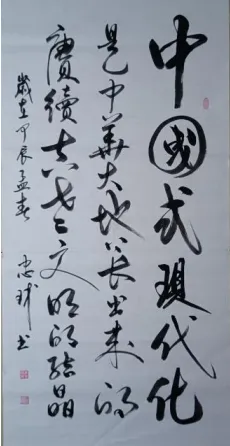 中國式現代化
是中華大地上長出來的
賡續古老文明的結晶
歲在甲辰孟春 忠 書